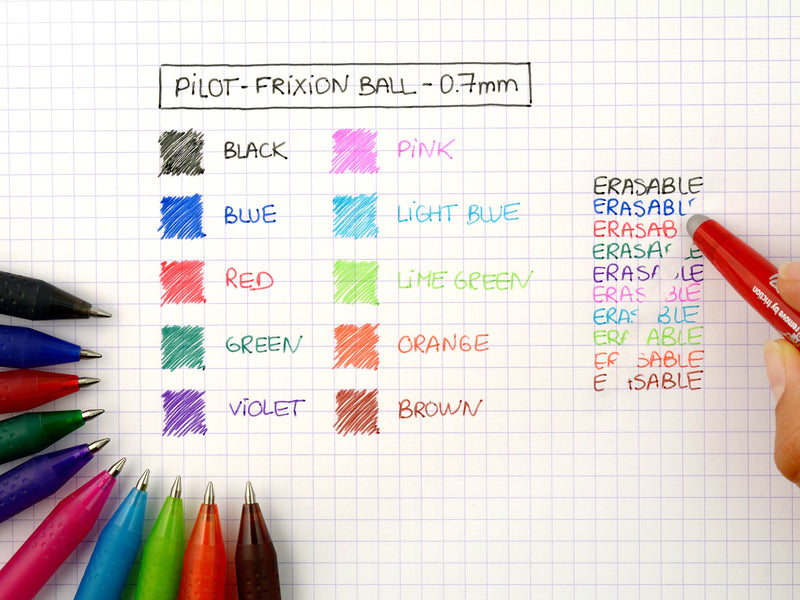 PILOT - FRIXION BALL - 0.7mm
BLACK
BLUE
RED
GREEN
VIOLET
PINK
LIGHT BLUE
LIME GREEN
ORANGE
BROWN
ERASABLE
ERASABL
ERASAB
ERASA E
ERASA LE
ERAS BLE
ERA BLE
ER ABLE
ER SABLE
E SABLE
remove by friction